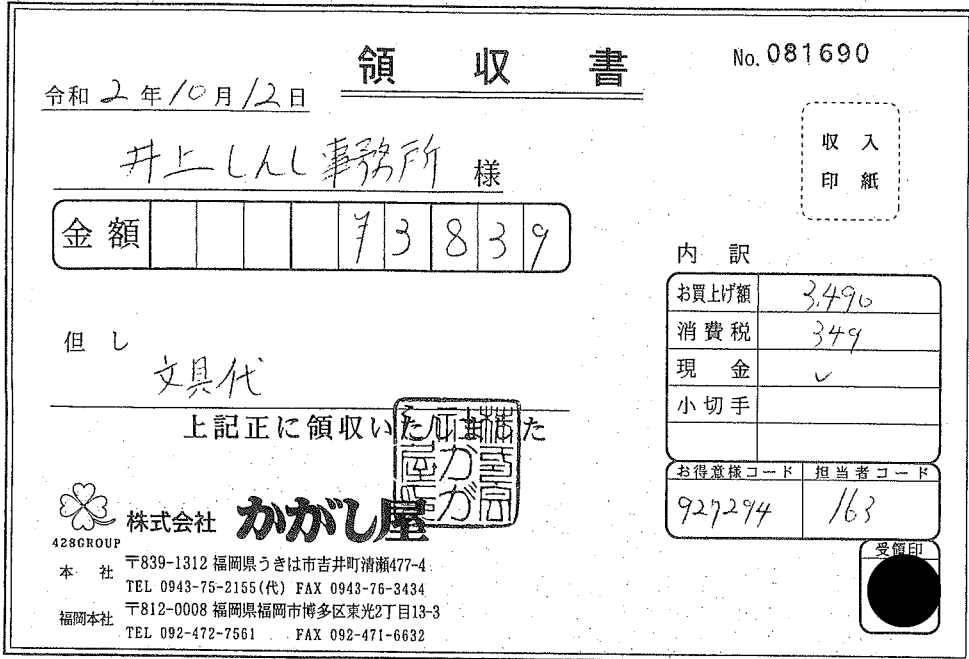 領収書
No. 081690
令和2年10月12日
収入
印紙
井上しんじ事務所 様
金額 ¥3839
内訳
お買上げ額 3,490
消費税 349
現金 ✓
小切手
但し
文具代
上記正に領収いたしました
お得意様コード 担当者コード
927294 163
受領印
428GROUP
株式会社 かがし屋
本社 〒839-1312 福岡県うきは市吉井町清瀬477-4
TEL 0943-75-2155(代) FAX 0943-76-3434
福岡本社 〒812-0008 福岡県福岡市博多区東光2丁目13-3
TEL 092-472-7561 FAX 092-471-6632